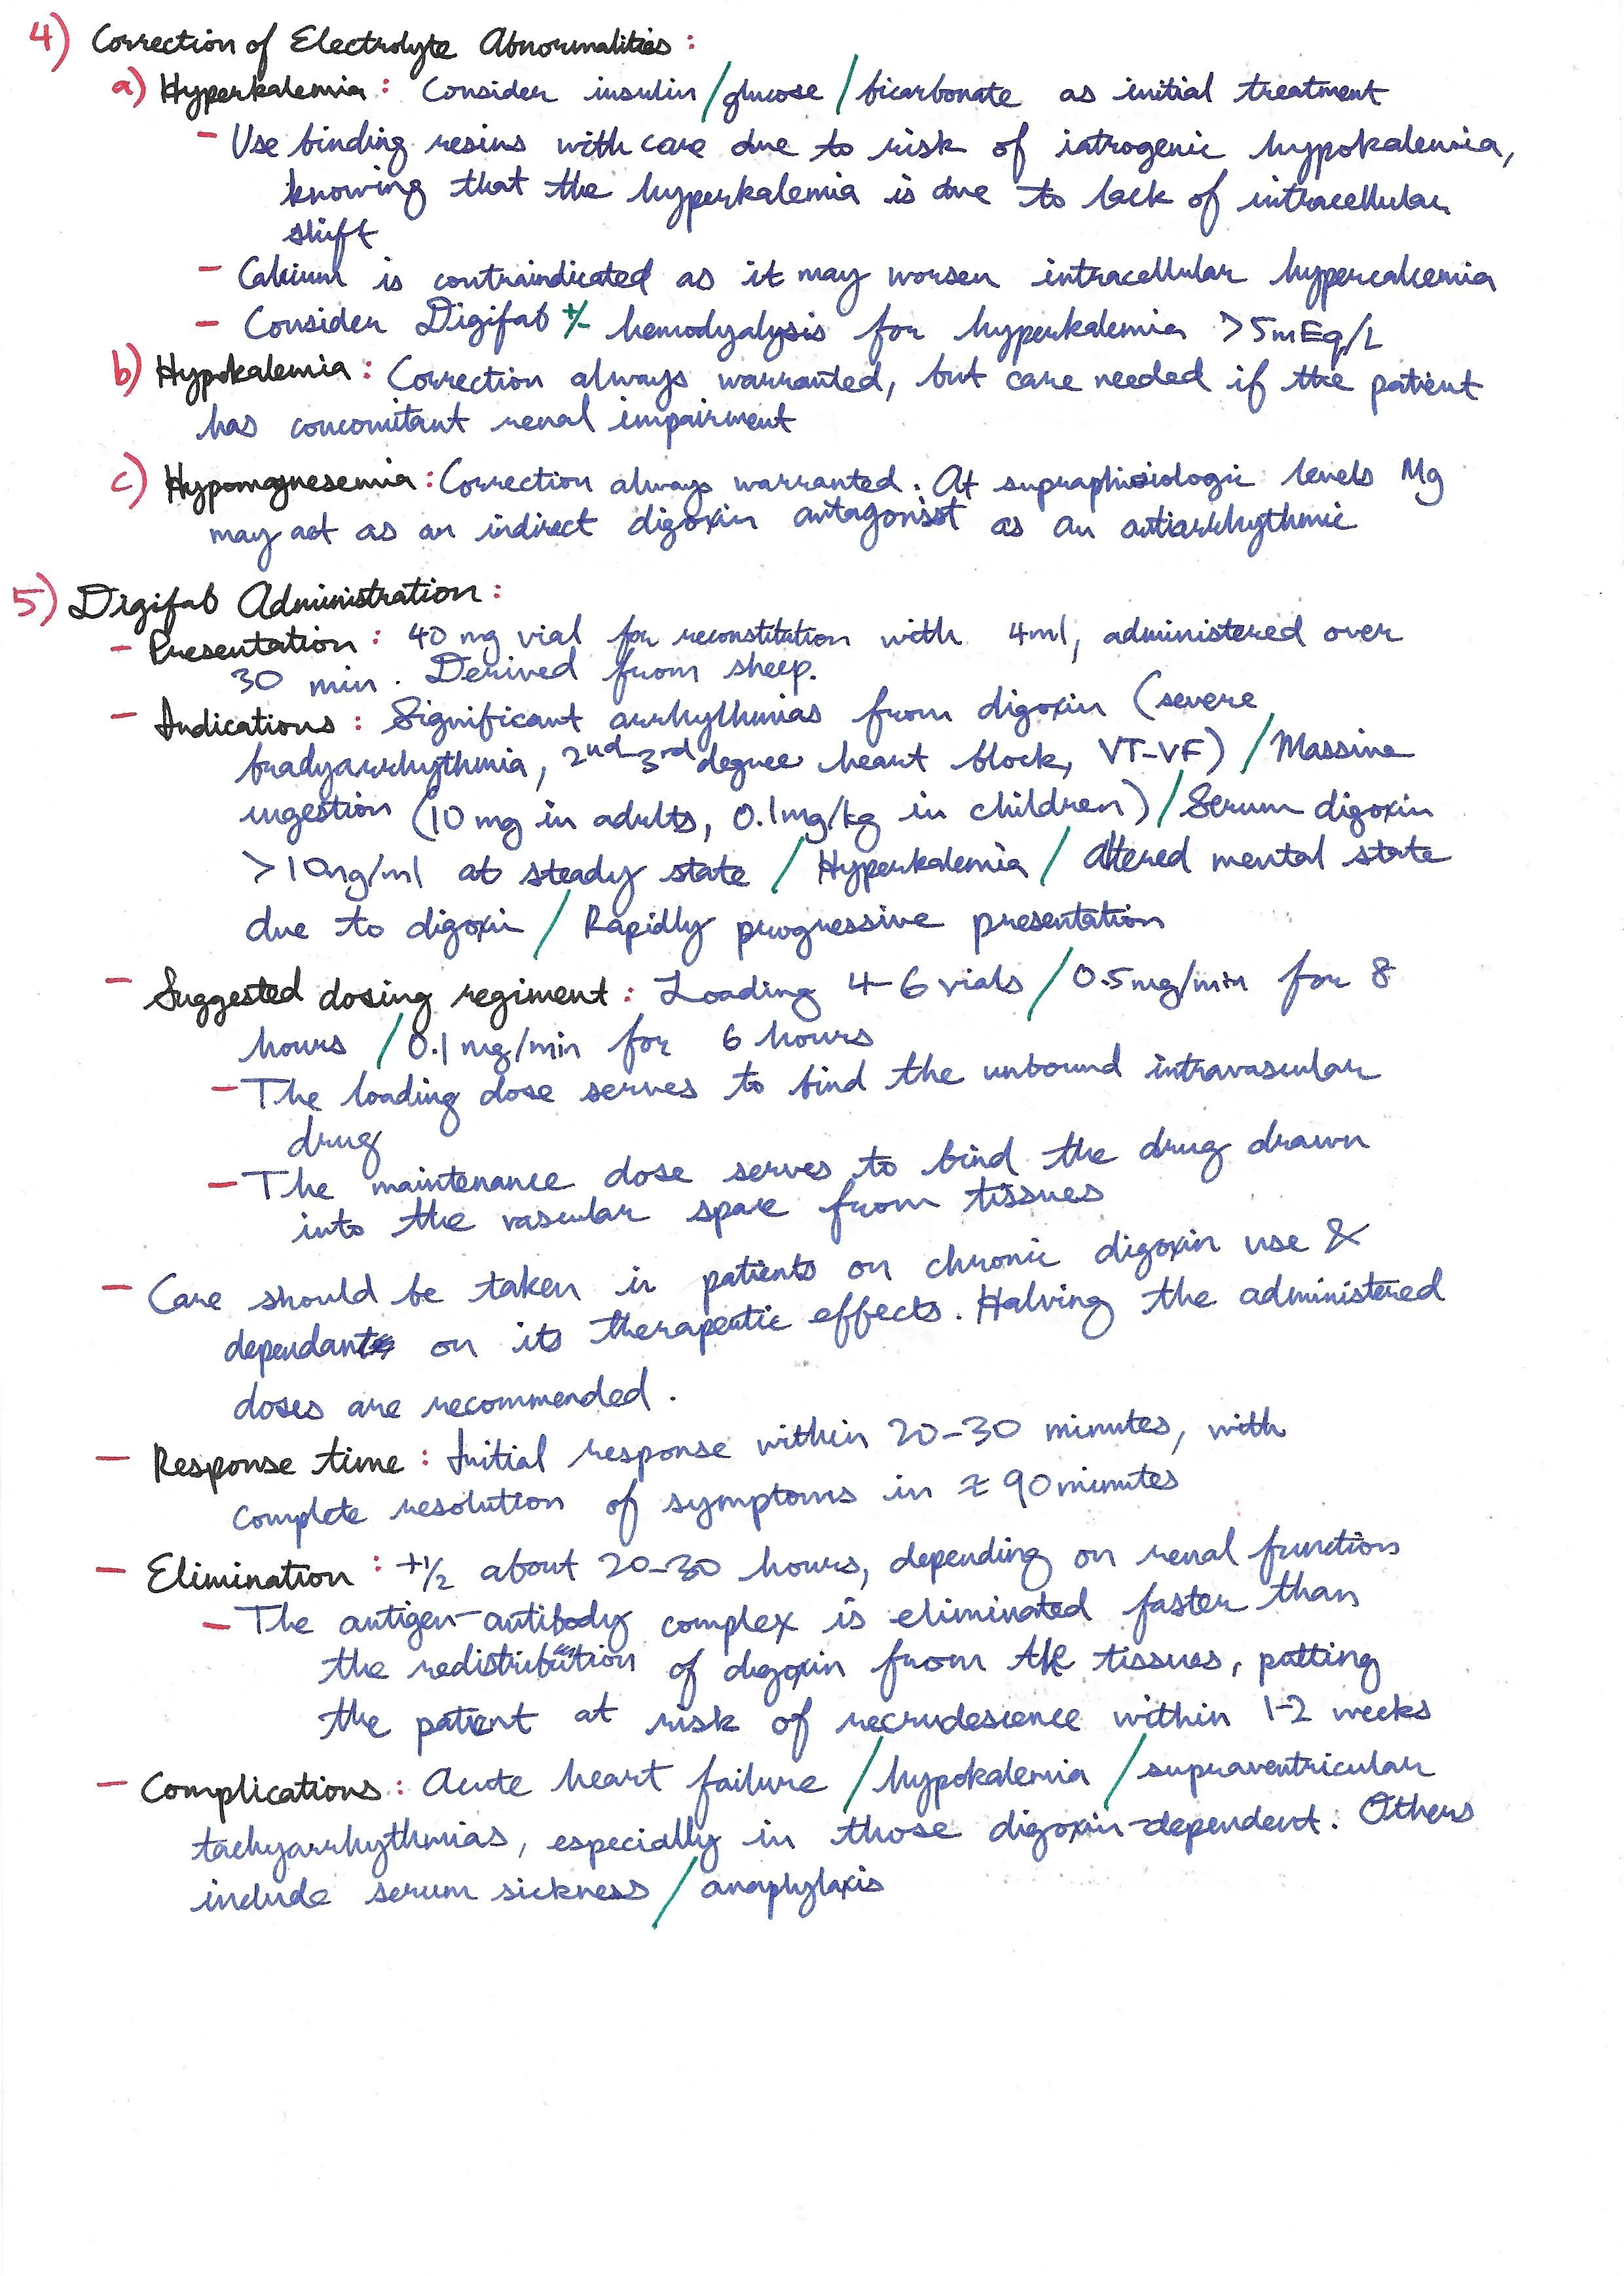 4) Correction of Electrolyte Abnormalities:
a) Hyperkalemia: Consider insulin/glucose/bicarbonate as initial treatment
- Use binding resins with care due to risk of iatrogenic hypokalemia,
knowing that the hyperkalemia is due to lack of intracellular
shift
- Calcium is contraindicated as it may worsen intracellular hypercalcemia
- Consider Digifab +/- hemodyalysis for hyperkalemia >5mEq/L
b) Hypokalemia: Correction always warranted, but care needed if the patient
has concomitant renal impairment
c) Hypomagnesemia: Correction always warranted. At supraphisiologic levels Mg
may act as an indirect digoxin antagonist as an antiarrhythmic
5) Digifab Administration:
- Presentation: 40 mg vial for reconstitution with 4ml, administered over
30 min. Derived from sheep.
- Indications: Significant arrhythmias from digoxin (severe
bradyarrhythmia, 2nd-3rd degree heart block, VT-VF) / Massive
ingestion (10 mg in adults, 0.1mg/kg in children) / Serum digoxin
>10ng/ml at steady state / Hyperkalemia / Altered mental state
due to digoxin / Rapidly progressive presentation
- Suggested dosing regiment: Loading 4-6 vials / 0.5mg/min for 8
hours / 0.1 mg/min for 6 hours
- The loading dose serves to bind the unbound intravascular
drug
- The maintenance dose serves to bind the drug drawn
into the vascular space from tissues
- Care should be taken in patients on chronic digoxin use &
dependant on its therapeutic effects. Halving the administered
doses are recommended.
- Response time: Initial response within 20-30 minutes, with
complete resolution of symptoms in ≈ 90 minutes
- Elimination: t1/2 about 20-30 hours, depending on renal function
- The antigen-antibody complex is eliminated faster than
the redistribution of digoxin from the tissues, putting
the patient at risk of recrudescence within 1-2 weeks
- Complications: Acute heart failure / hypokalemia / supraventricular
tachyarrhythmias, especially in those digoxin-dependent. Others
include serum sickness / anaphylaxis